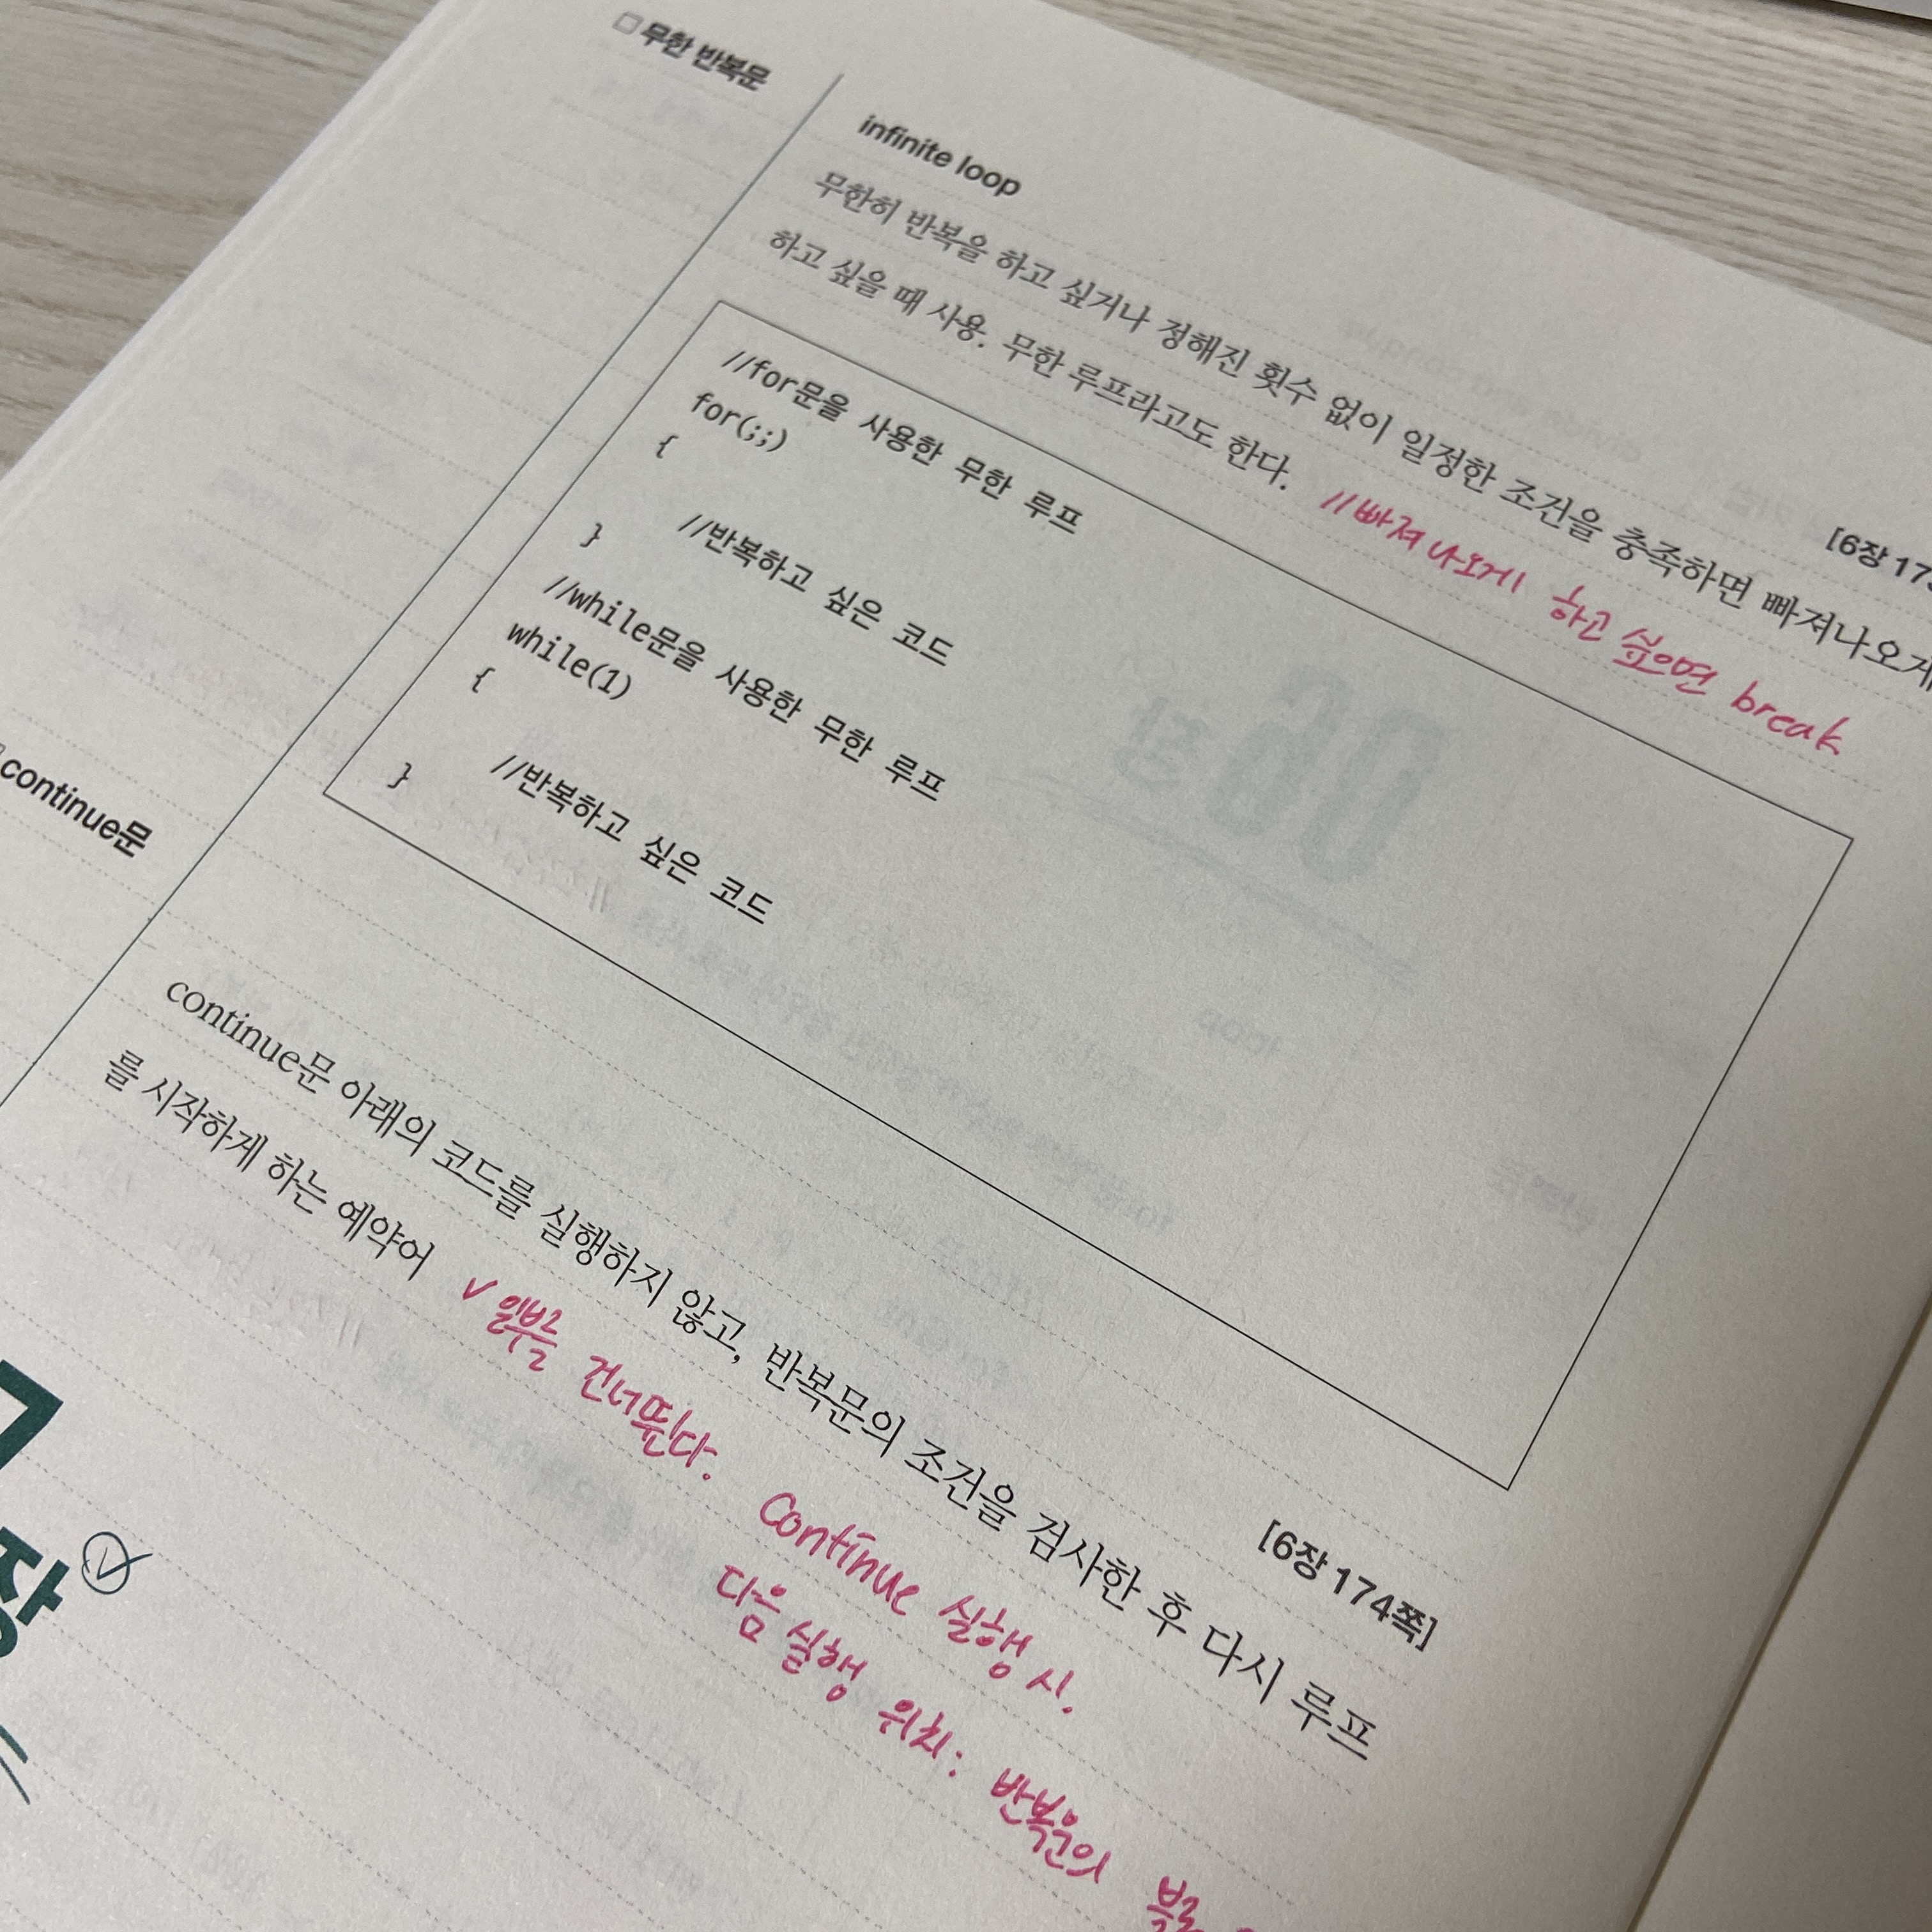 무한 반복문
infinite loop
[6장 17
무한히 반복을 하고 싶거나 정해진 횟수 없이 일정한 조건을 충족하면 빠져나오게
하고 싶을 때 사용. 무한 루프라고도 한다. //빠져나오게 하고 싶으면 break
//for문을 사용한 무한 루프
for(;;)
{
//반복하고 싶은 코드
}
//while문을 사용한 무한 루프
while(1)
{
//반복하고 싶은 코드
}
continue문
[6장 174쪽]
continue문 아래의 코드를 실행하지 않고, 반복문의 조건을 검사한 후 다시 루프
를 시작하게 하는 예약어 ✓ 일부를 건너뛴다. Continue 실행 시.
다음 실행 위치: 반복문의
장